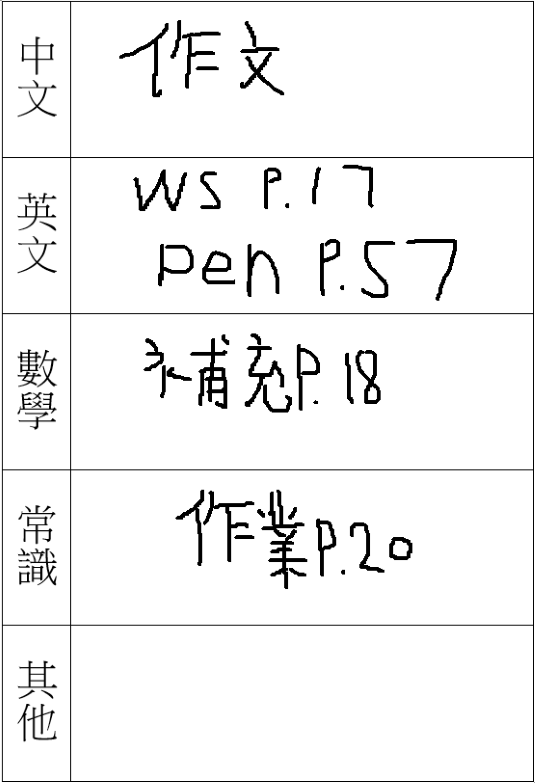 中文 作文
英文 WS P.17
Pen P.57
數學 補充P.18
常識 作業P.20
其他